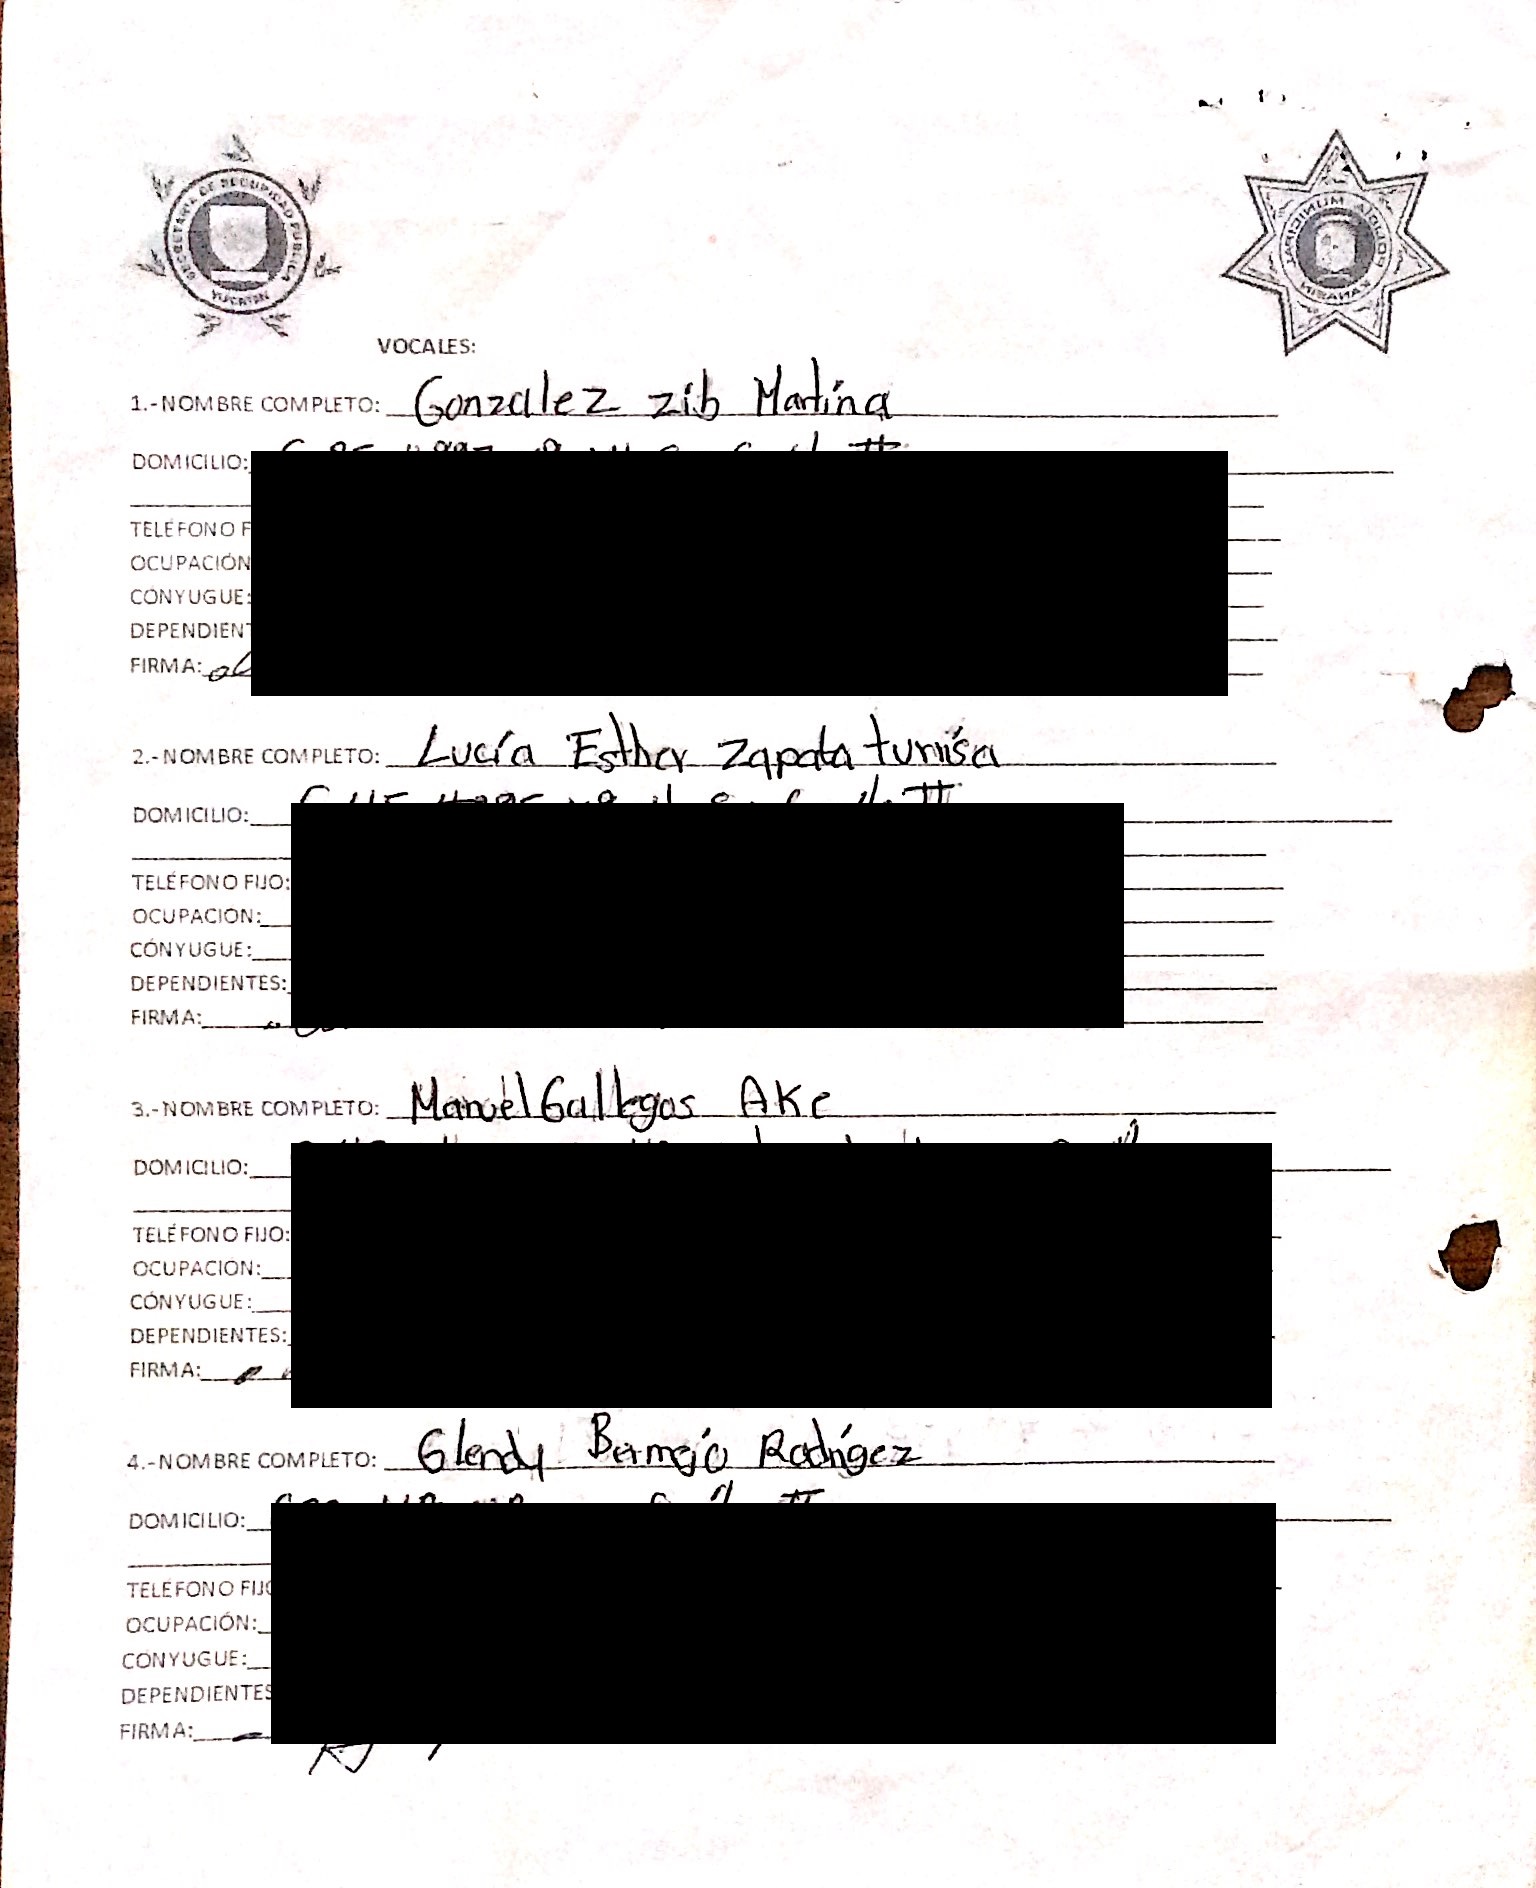 SECRETARIA DE SEGURIDAD PUBLICA
YUCATAN
POLICIA MUNICIPAL
KANASIN
VOCALES:
1.-NOMBRE COMPLETO: Gonzalez zib Martina
DOMICILIO:
TELÉFONO F
OCUPACIÓN
CONYUGUE:
DEPENDIENT
FIRMA:
2.-NOMBRE COMPLETO: Lucía Esther Zapata
DOMICILIO:
TELÉFONO FIJO:
OCUPACION:
CÓNYUGUE:
DEPENDIENTES:
FIRMA:
3.-NOMBRE COMPLETO: Manuel Gallegos AKe
DOMICILIO:
TELÉFONO FIJO:
OCUPACION:
CÓNYUGUE:
DEPENDIENTES:
FIRMA:
4.-NOMBRE COMPLETO: Glendy Bermejo Rodrígez
DOMICILIO:
TELÉFONO FIJO
OCUPACIÓN:
CONYUGUE:
DEPENDIENTES
FIRMA: